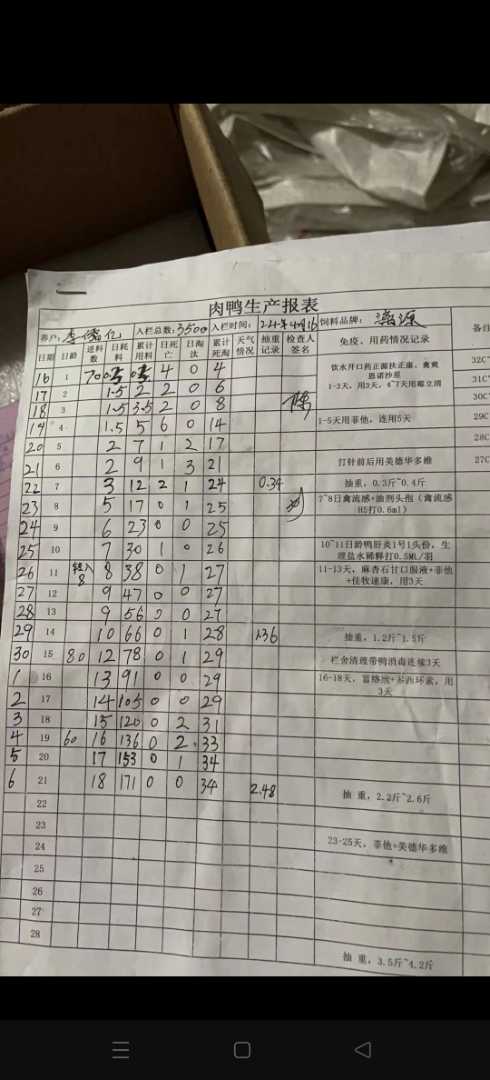 肉鸭生产报表
养户: 李 亿 入栏总数: 3500 入栏时间: 24年4月16 饲料品牌: 源
日期 日龄 进料数 日耗料 累计用料 日死亡 日淘汰 累计死淘 天气情况 抽重记录 检查人签名 免疫、用药情况记录 备
16 1 700 4 0 4 饮水开口药正源扶正康、禽黄 32C
1-3天,用3天,4~7天用霉立清
17 2 1.5 2 2 0 6 31C
18 3 1.5 3.5 2 0 8 30C
19 4 1.5 5 6 0 14 1-5天用菲他,连用5天 29C
20 5 2 7 1 2 17 28C
21 6 2 9 1 3 21 打针前后用美德华多维 27C
22 7 3 12 2 1 24 0.34 抽重,0.3斤~0.4斤
23 8 5 17 0 1 25 7~8日禽流感+油剂头孢(禽流感H5打0.6ml)
24 9 6 23 0 0 25
25 10 7 30 1 0 26 10~11日龄鸭肝炎1号1头份,生理盐水稀释打0.5ML/羽
26 11 转入8 8 38 0 1 27 11-13天,麻杏石甘口服液+菲他+佳牧速康,用3天
27 12 9 47 0 0 27
28 13 9 56 0 0 27
29 14 10 66 0 1 28 1.36 抽重,1.2斤~1.5斤
30 15 80 12 78 0 1 29 栏舍清理带鸭消毒连续3天
1 16 13 91 0 0 29 16-18天,
2 17 14 105 0 0 29 3天
3 18 15 120 0 2 31
4 19 60 16 136 0 2 33
5 20 17 153 0 1 34
6 21 18 171 0 0 34 2.48 抽重,2.2斤~2.6斤
22
23
24 23-25天,菲他+美德华多维
25
26
27
28 抽重,3.5斤~4.2斤